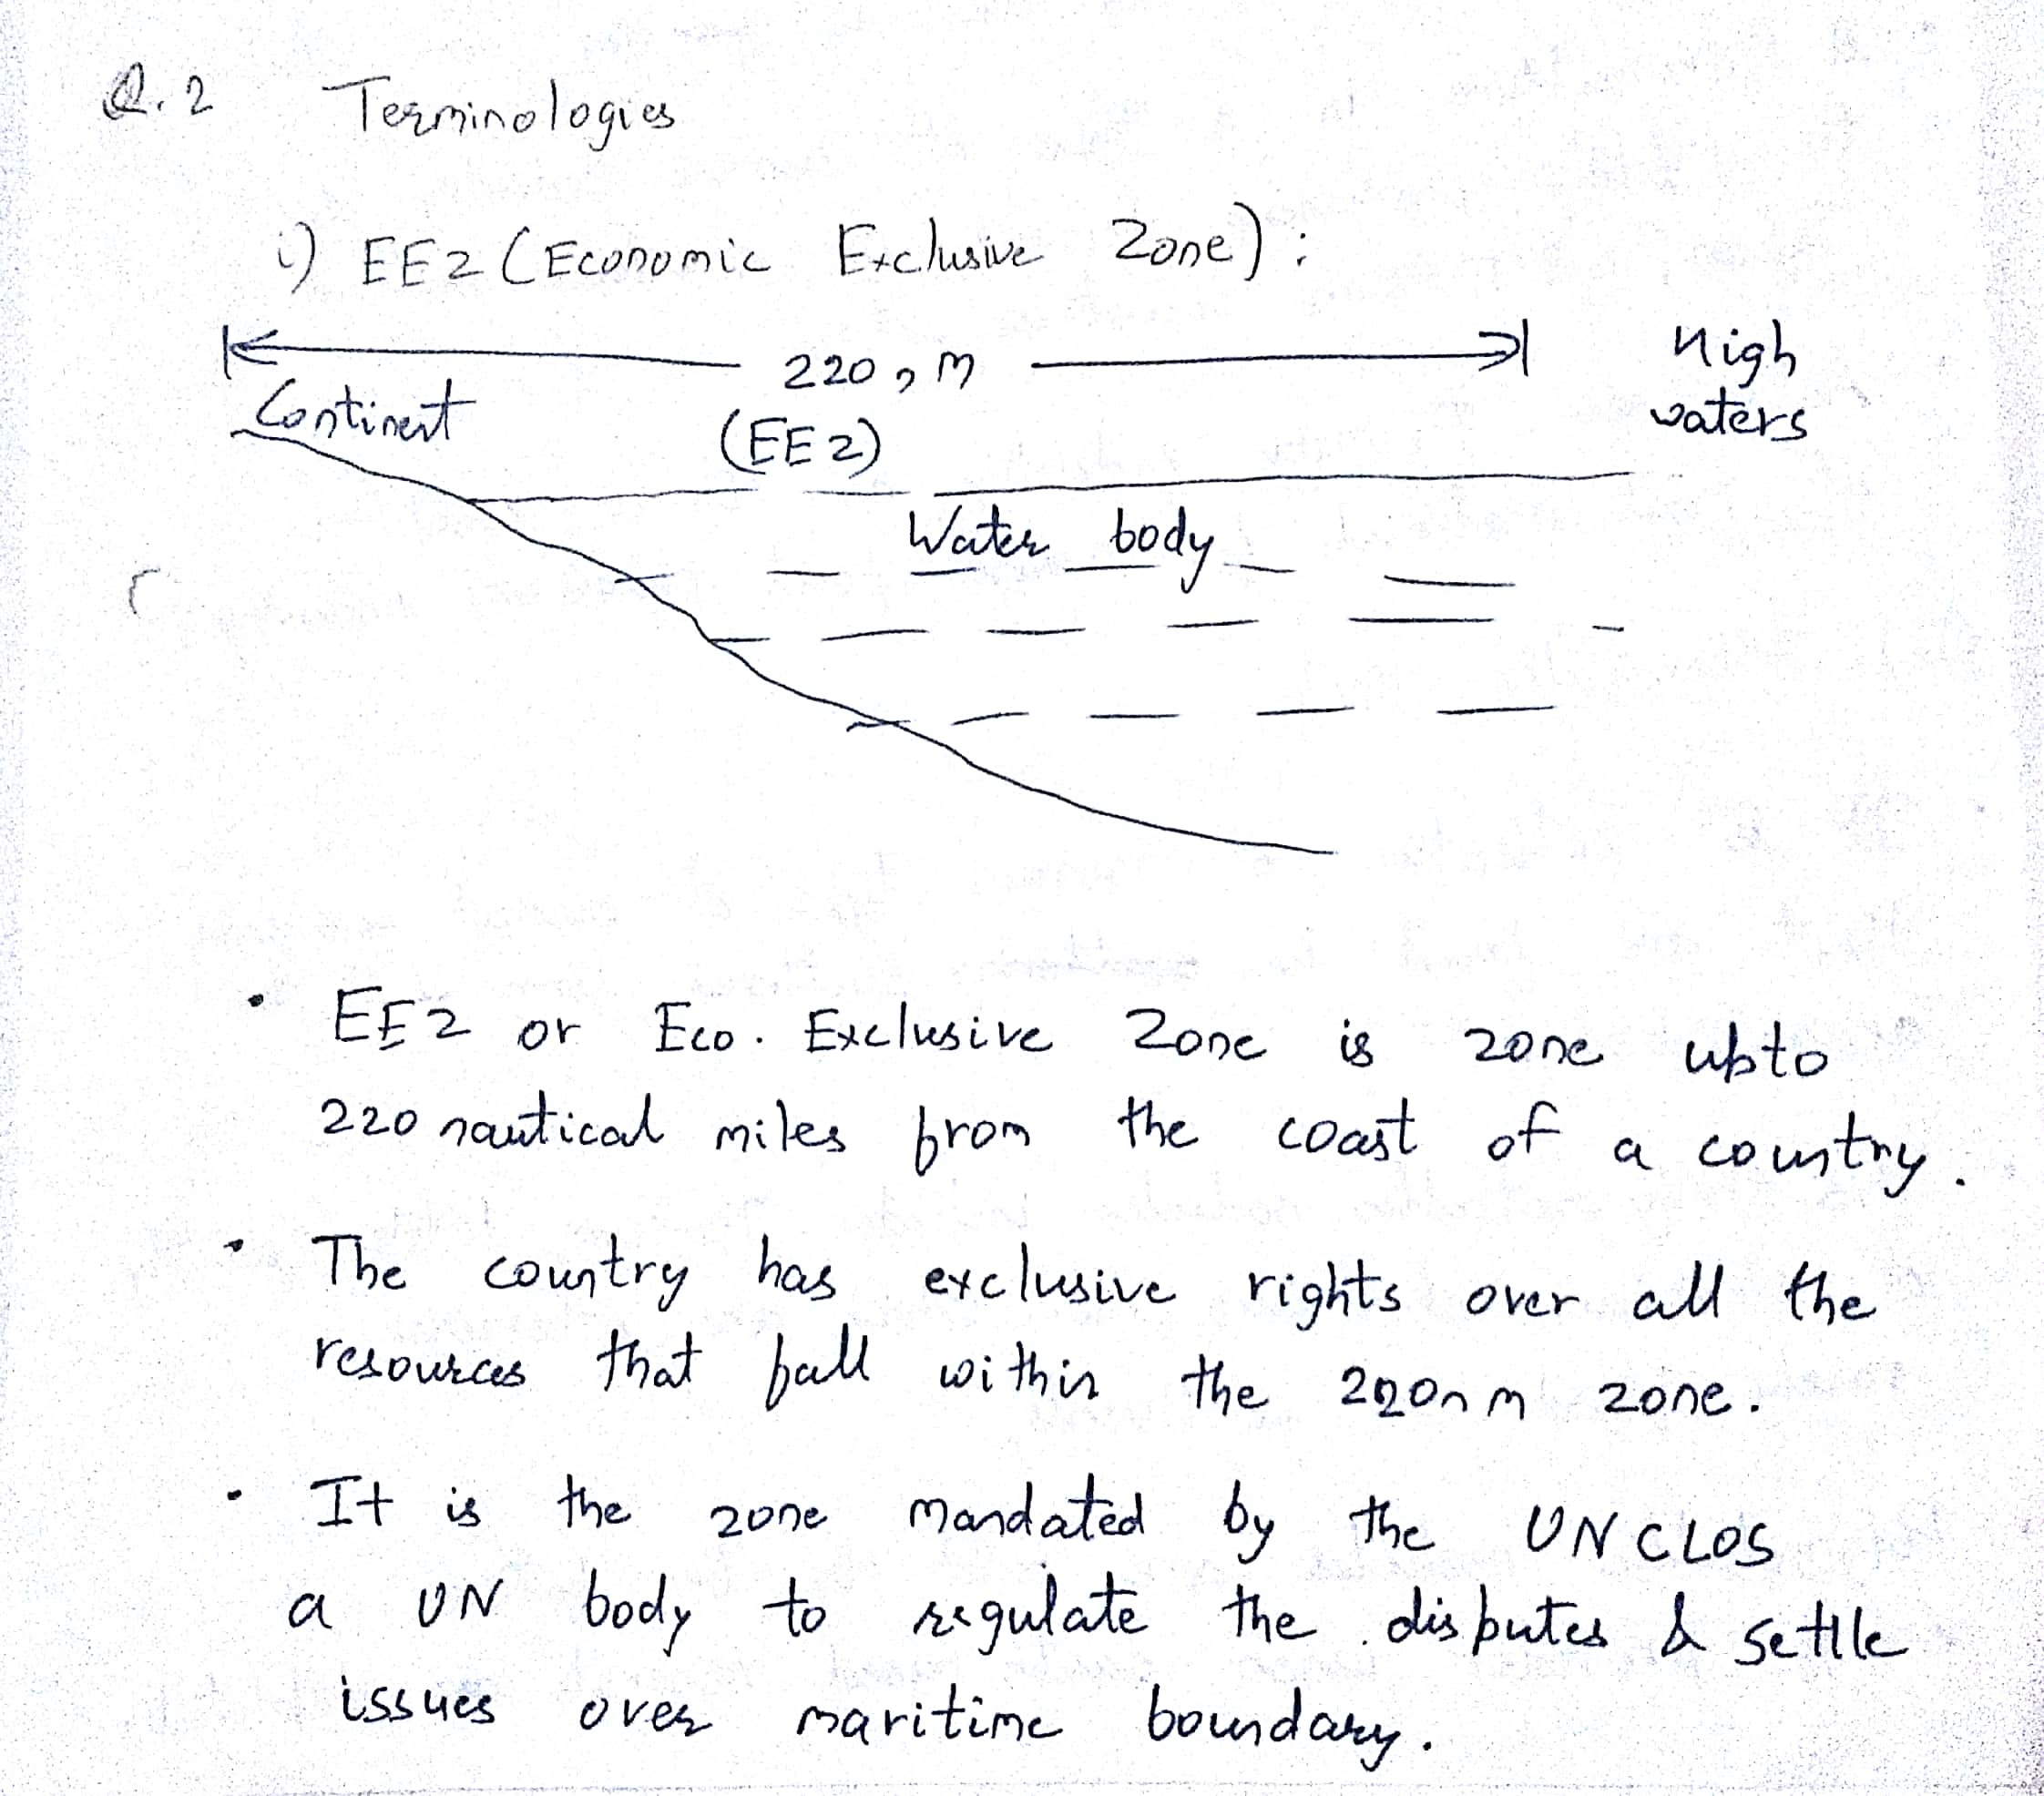 Q.2 Terminologies
i) EEZ (Economic Exclusive Zone):
220 nm
High
Continent
waters
(EEZ)
Water body
• EEZ or Eco. Exclusive Zone is zone upto
220 nautical miles from the coast of a country.
• The country has exclusive rights over all the
resources that fall within the 220nm zone.
• It is the zone mandated by the UNCLOS
a UN body to regulate the disputes & settle
issues over maritime boundary.